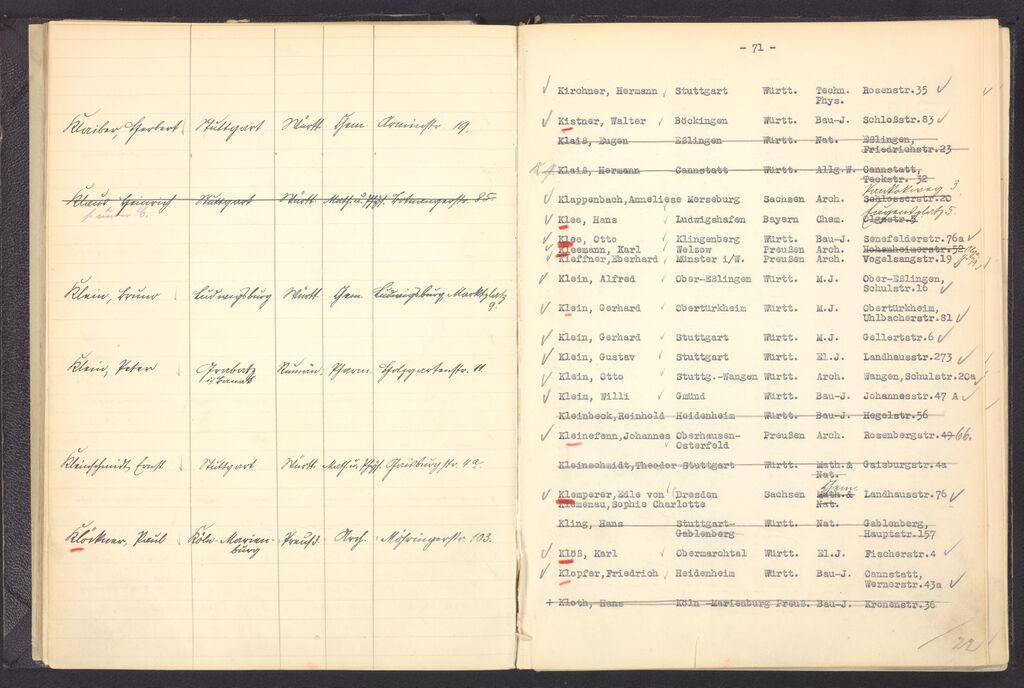 Klaiber, Herbert Stuttgart Württ. Chem. Arminstr. 19.
Klaus, Heinrich Stuttgart Württ. Math. u. Phys. Botnangerstr. 85.
Klein, Bruno Ludwigsburg Württ. Chem. Ludwigsburg Marktplatz
9.
Klein, Peter Grabatz Rumän. Pharm. Holzgartenstr. 11
i. Banat
Kleinschmidt, Ernst Stuttgart Württ. Math. u. Phys. Gaisburgstr. 4a.
Klöckner, Paul Köln-Marien- Preuß. Arch. Möhringerstr. 103.
burg
- 71 -
Kirchner, Hermann Stuttgart Württ. Techn. Rosenstr.35
Phys.
Kistner, Walter Böckingen Württ. Bau-J. Schloßstr.83
Klaiß, Eugen Eßlingen Württ. Nat. Eßlingen,
Friedrichstr.23
Klaiß, Hermann Cannstatt Württ. Allg.W. Cannstatt,
Teckstr. 32
Pankokweg 3
Klappenbach,Anneliese Merseburg Sachsen Arch. Schlosserstr.20
Eugensplatz 5.
Klee, Hans Ludwigshafen Bayern Chem. Olgastr.5
Klee, Otto Klingenberg Württ. Bau-J. Senefelderstr.76a
Kleemann, Karl Welzow Preußen Arch. Hohenheimerstr.52
Kleffner,Eberhard Münster i/W. Preußen Arch. Vogelsangstr.19
Klein, Alfred Ober-Eßlingen Württ. M.J. Ober-Eßlingen,
Schulstr.16
Klein, Gerhard Obertürkheim Württ. M.J. Obertürkheim,
Uhlbacherstr.81
Klein, Gerhard Stuttgart Württ. M.J. Gellertstr.6
Klein, Gustav Stuttgart Württ. El.J. Landhausstr.273
Klein, Otto Stuttg.-Wangen Württ. Arch. Wangen,Schulstr.20a
Klein, Willi Gmünd Württ. Bau-J. Johannesstr.47 A
Kleinbeck,Reinhold Heidenheim Württ. Bau-J. Hegelstr.56
Kleinefenn,Johannes Oberhausen- Preußen Arch. Rosenbergstr.49 66.
Osterfeld
Kleinschmidt,Theodor Stuttgart Württ. Math.& Gaisburgstr.4a
Nat.
Chem.
Klemperer,Edle von Dresden Sachsen Math.& Landhausstr.76
Klemenau,Sophie Charlotte Nat.
Kling, Hans Stuttgart- Württ. Nat. Gablenberg,
Gablenberg Hauptstr.157
Klöß, Karl Obermarchtal Württ. El.J. Fischerstr.4
Klopfer,Friedrich Heidenheim Württ. Bau-J. Cannstatt,
Wernerstr.43a
+ Kloth, Hans Köln -Marienburg Preuß. Bau-J. Kronenstr.36
22